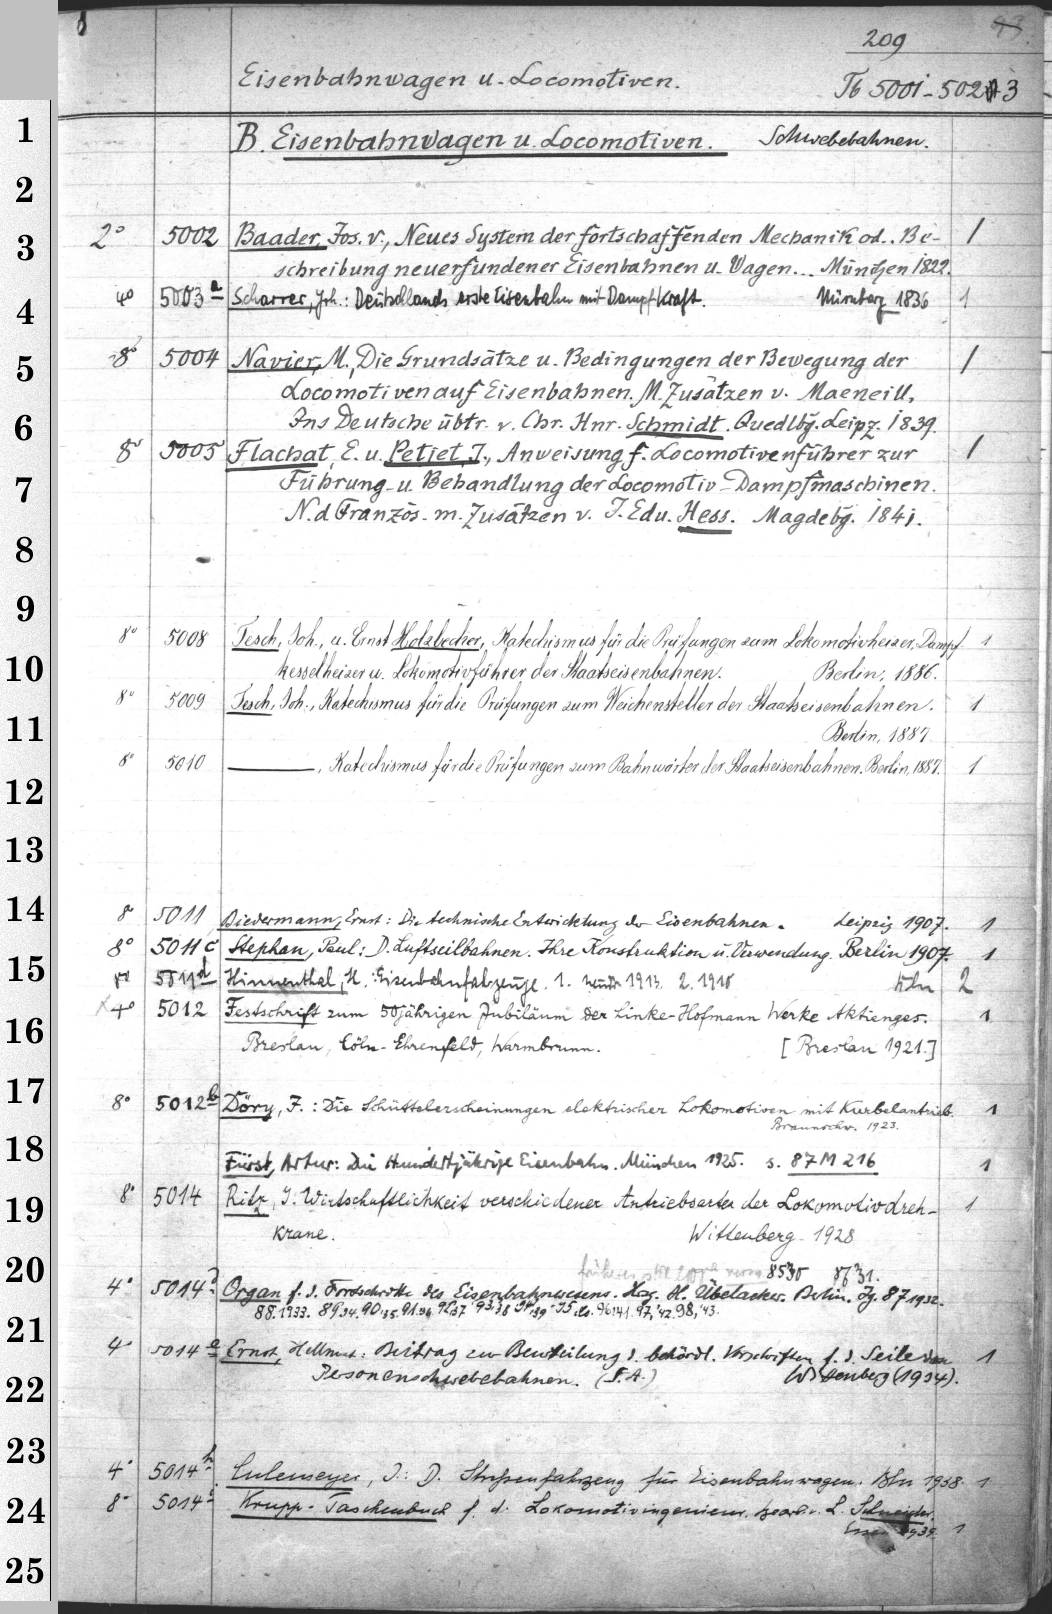 209
93.
Eisenbahnwagen u. Locomotiven. Tb 5001-5023
1
B. Eisenbahnwagen u. Locomotiven. Schwebebahnen.
2
2° 5002 Baader, Jos. v., Neues System der fortschaffenden Mechanik od.. Be- 1
3
schreibung neuerfundener Eisenbahnen u. Wagen... München 1822.
4° 5003a Scharrer, Joh.: Deutschlands erste Eisenbahn mit Dampfkraft. Nürnberg 1836 1
4
8° 5004 Navier, M., Die Grundsätze u. Bedingungen der Bewegung der 1
5
Locomotiven auf Eisenbahnen. M. Zusätzen v. Maeneill,
Ins Deutsche übtr. v. Chr. Hnr. Schmidt. Quedlbg. Leipz. 1839.
6
8° 5005 Flachat, E. u. Petiet, J., Anweisung f. Locomotivenführer zur 1
Führung u. Behandlung der Locomotiv-Dampfmaschinen.
7
N. d. Französ. m. Zusätzen v. J. Edu. Hess. Magdebg. 1841.
8
9
8° 5008 Tesch, Joh., u. Ernst Holzbecher, Katechismus für die Prüfungen zum Lokomotivheizer, Dampf- 1
10
kesselheizer u. Lokomotivführer der Staatseisenbahnen. Berlin, 1886.
8° 5009 Tesch, Joh., Katechismus für die Prüfungen zum Weichensteller der Staatseisenbahnen. 1
11
Berlin, 1887.
8° 5010 ———, Katechismus für die Prüfungen zum Bahnwärter der Staatseisenbahnen. Berlin, 1887. 1
12
13
14
8° 5011 Biedermann, Ernst: Die technische Entwicklung der Eisenbahnen. Leipzig 1907. 1
8° 5011c Stephan, Paul: D. Luftseilbahnen. Ihre Konstruktion u. Verwendung. Berlin 1907. 1
15
5011d Hinnenthal, H.: Eisenbahnfahrzeuge. 1. 1913. 2. 1910 Bln 2
4° 5012 Festschrift zum 50jährigen Jubiläum der Linke-Hofmann Werke Aktienges. 1
16
Breslau, Cöln-Ehrenfeld, Warmbrunn. [Breslau 1921.]
17
8° 5012b Döry, F.: Die Schüttelerscheinungen elektrischer Lokomotiven mit Kurbelantrieb. 1
Braunschw. 1923.
18
Fürst, Artur: Die Hundertjährige Eisenbahn. München 1925. s. 87 M 216 1
8° 5014 Ritz, J: Wirtschaftlichkeit verschiedener Antriebsarten der Lokomotivdreh- 1
19
krane. Wittenberg 1928
20
8535
4° 5014 Organ f. d. Fortschritte des Eisenbahnwesens. Hrg. H. Übelacker. Berlin. Jg. 87 1932.
88.1933. 89,34. 90,35. 91,36 92,37 93,38 94,39
21
4° 5014a Ernst, Hellmut: Beitrag zur Beurteilung d. behördl. Vorschriften f. d. Seile von 1
Personenschwebebahnen. (S.A.) Wittenberg (1934).
22
23
4° 5014b Culemeyer, J.: D. Straßenfahrzeug für Eisenbahnwagen. Bln 1938. 1
8° 5014c Krupp-Taschenbuch f. d. Lokomotivingenieur, bearb. v. L. Schneider.
24
Essen 1939. 1
25